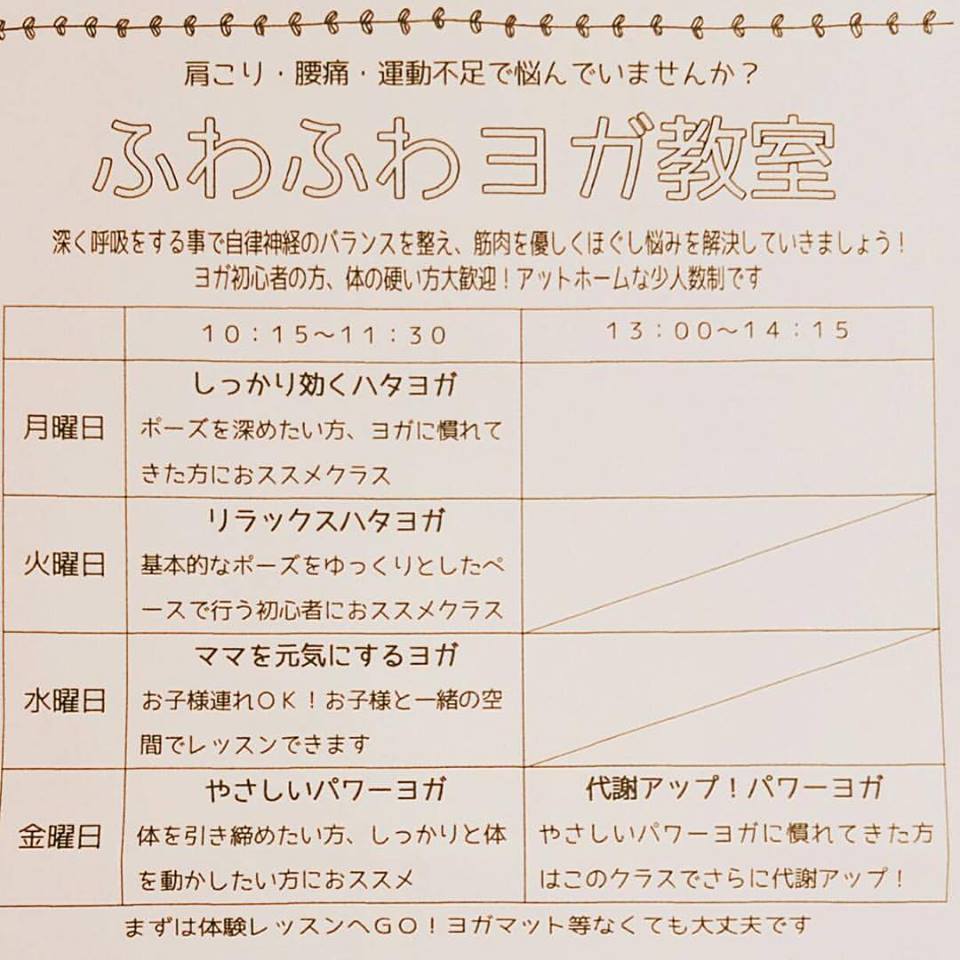 肩こり・腰痛・運動不足で悩んでいませんか？
ふわふわヨガ教室
深く呼吸をする事で自律神経のバランスを整え、筋肉を優しくほぐし悩みを解決していきましょう！
ヨガ初心者の方、体の硬い方大歓迎！アットホームな少人数制です
１０：１５～１１：３０
１３：００～１４：１５
月曜日
しっかり効くハタヨガ
ポーズを深めたい方、ヨガに慣れて
きた方におススメクラス
火曜日
リラックスハタヨガ
基本的なポーズをゆっくりとしたペ
ースで行う初心者におススメクラス
水曜日
ママを元気にするヨガ
お子様連れＯＫ！お子様と一緒の空
間でレッスンできます
金曜日
やさしいパワーヨガ
体を引き締めたい方、しっかりと体
を動かしたい方におススメ
代謝アップ！パワーヨガ
やさしいパワーヨガに慣れてきた方
はこのクラスでさらに代謝アップ！
まずは体験レッスンへＧＯ！ヨガマット等なくても大丈夫です